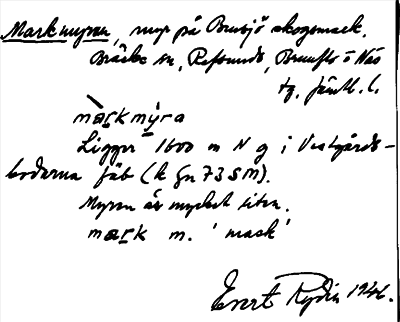 Markmyran, myr på Bensjö skogsmark,
Bräcke sn, Refsunds, Brunflo o Näs
tg. Jämtl. l.
markmýra
Ligger 1600 m N g i Vestgårds-
bodarna fäb (k gn 73 SM).
Myren är mycket liten.
mark m. 'mask'
Evert Rydin 1946.